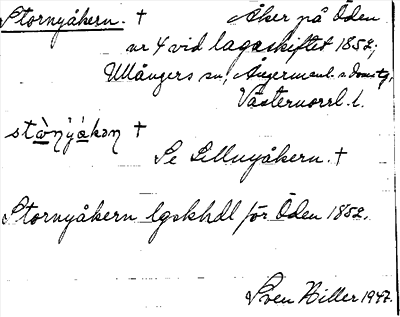 Stornyåkern. † Åker på Öden
nr 4 vid lagaskiftet 1852;
Ullångers sn, Ångermanl. s domstg,
Västernorrl. l.
stòŋ̀ýákən †
Se Lillnyåkern. †
Stornyåkern lgskhdl för Öden 1852.
Sven Hiller 1947.